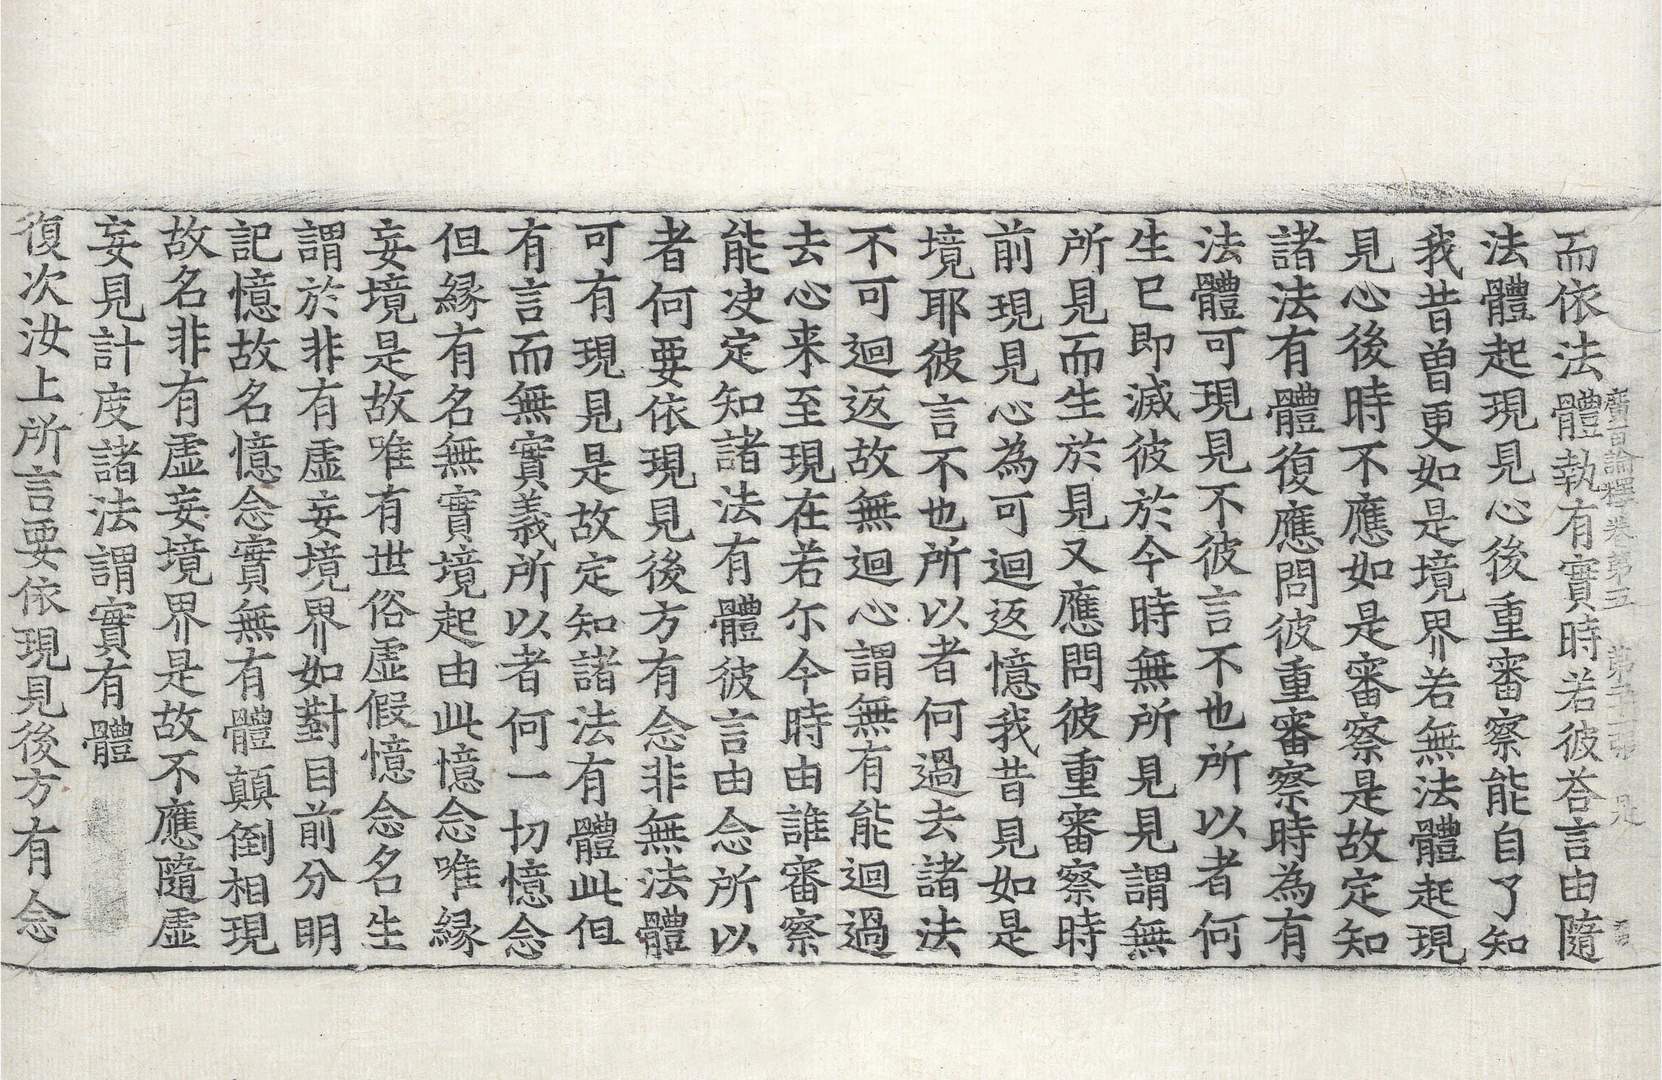 廣百論釋卷第五　第五張　是
而依法體執有實時若彼荅言由隨
法體起現見心後重審察能自了知
我昔曽更如是境界若無法體起現
見心後時不應如是審察是故定知
諸法有體復應問彼重審察時為有
法體可現見不彼言不也所以者何
生已即滅彼於今時無所見見謂無
所見而生於見又應問彼重審察時
前現見心為可迴返憶我昔見如是
境耶彼言不也所以者何過去諸法
不可迴返故無迴心謂無有能迴過
去心来至現在若尓今時由誰審察
能决定知諸法有體彼言由念所以
者何要依現見後方有念非無法體
可有現見是故定知諸法有體此但
有言而無實義所以者何一切憶念
但縁有名無實境起由此憶念唯縁
妄境是故唯有世俗虛假憶念名生
謂於非有虛妄境界如對目前分明
記憶故名憶念實無有體顛倒相現
故名非有虛妄境界是故不應隨虛
妄見計度諸法謂實有體
復次汝上所言要依現見後方有念